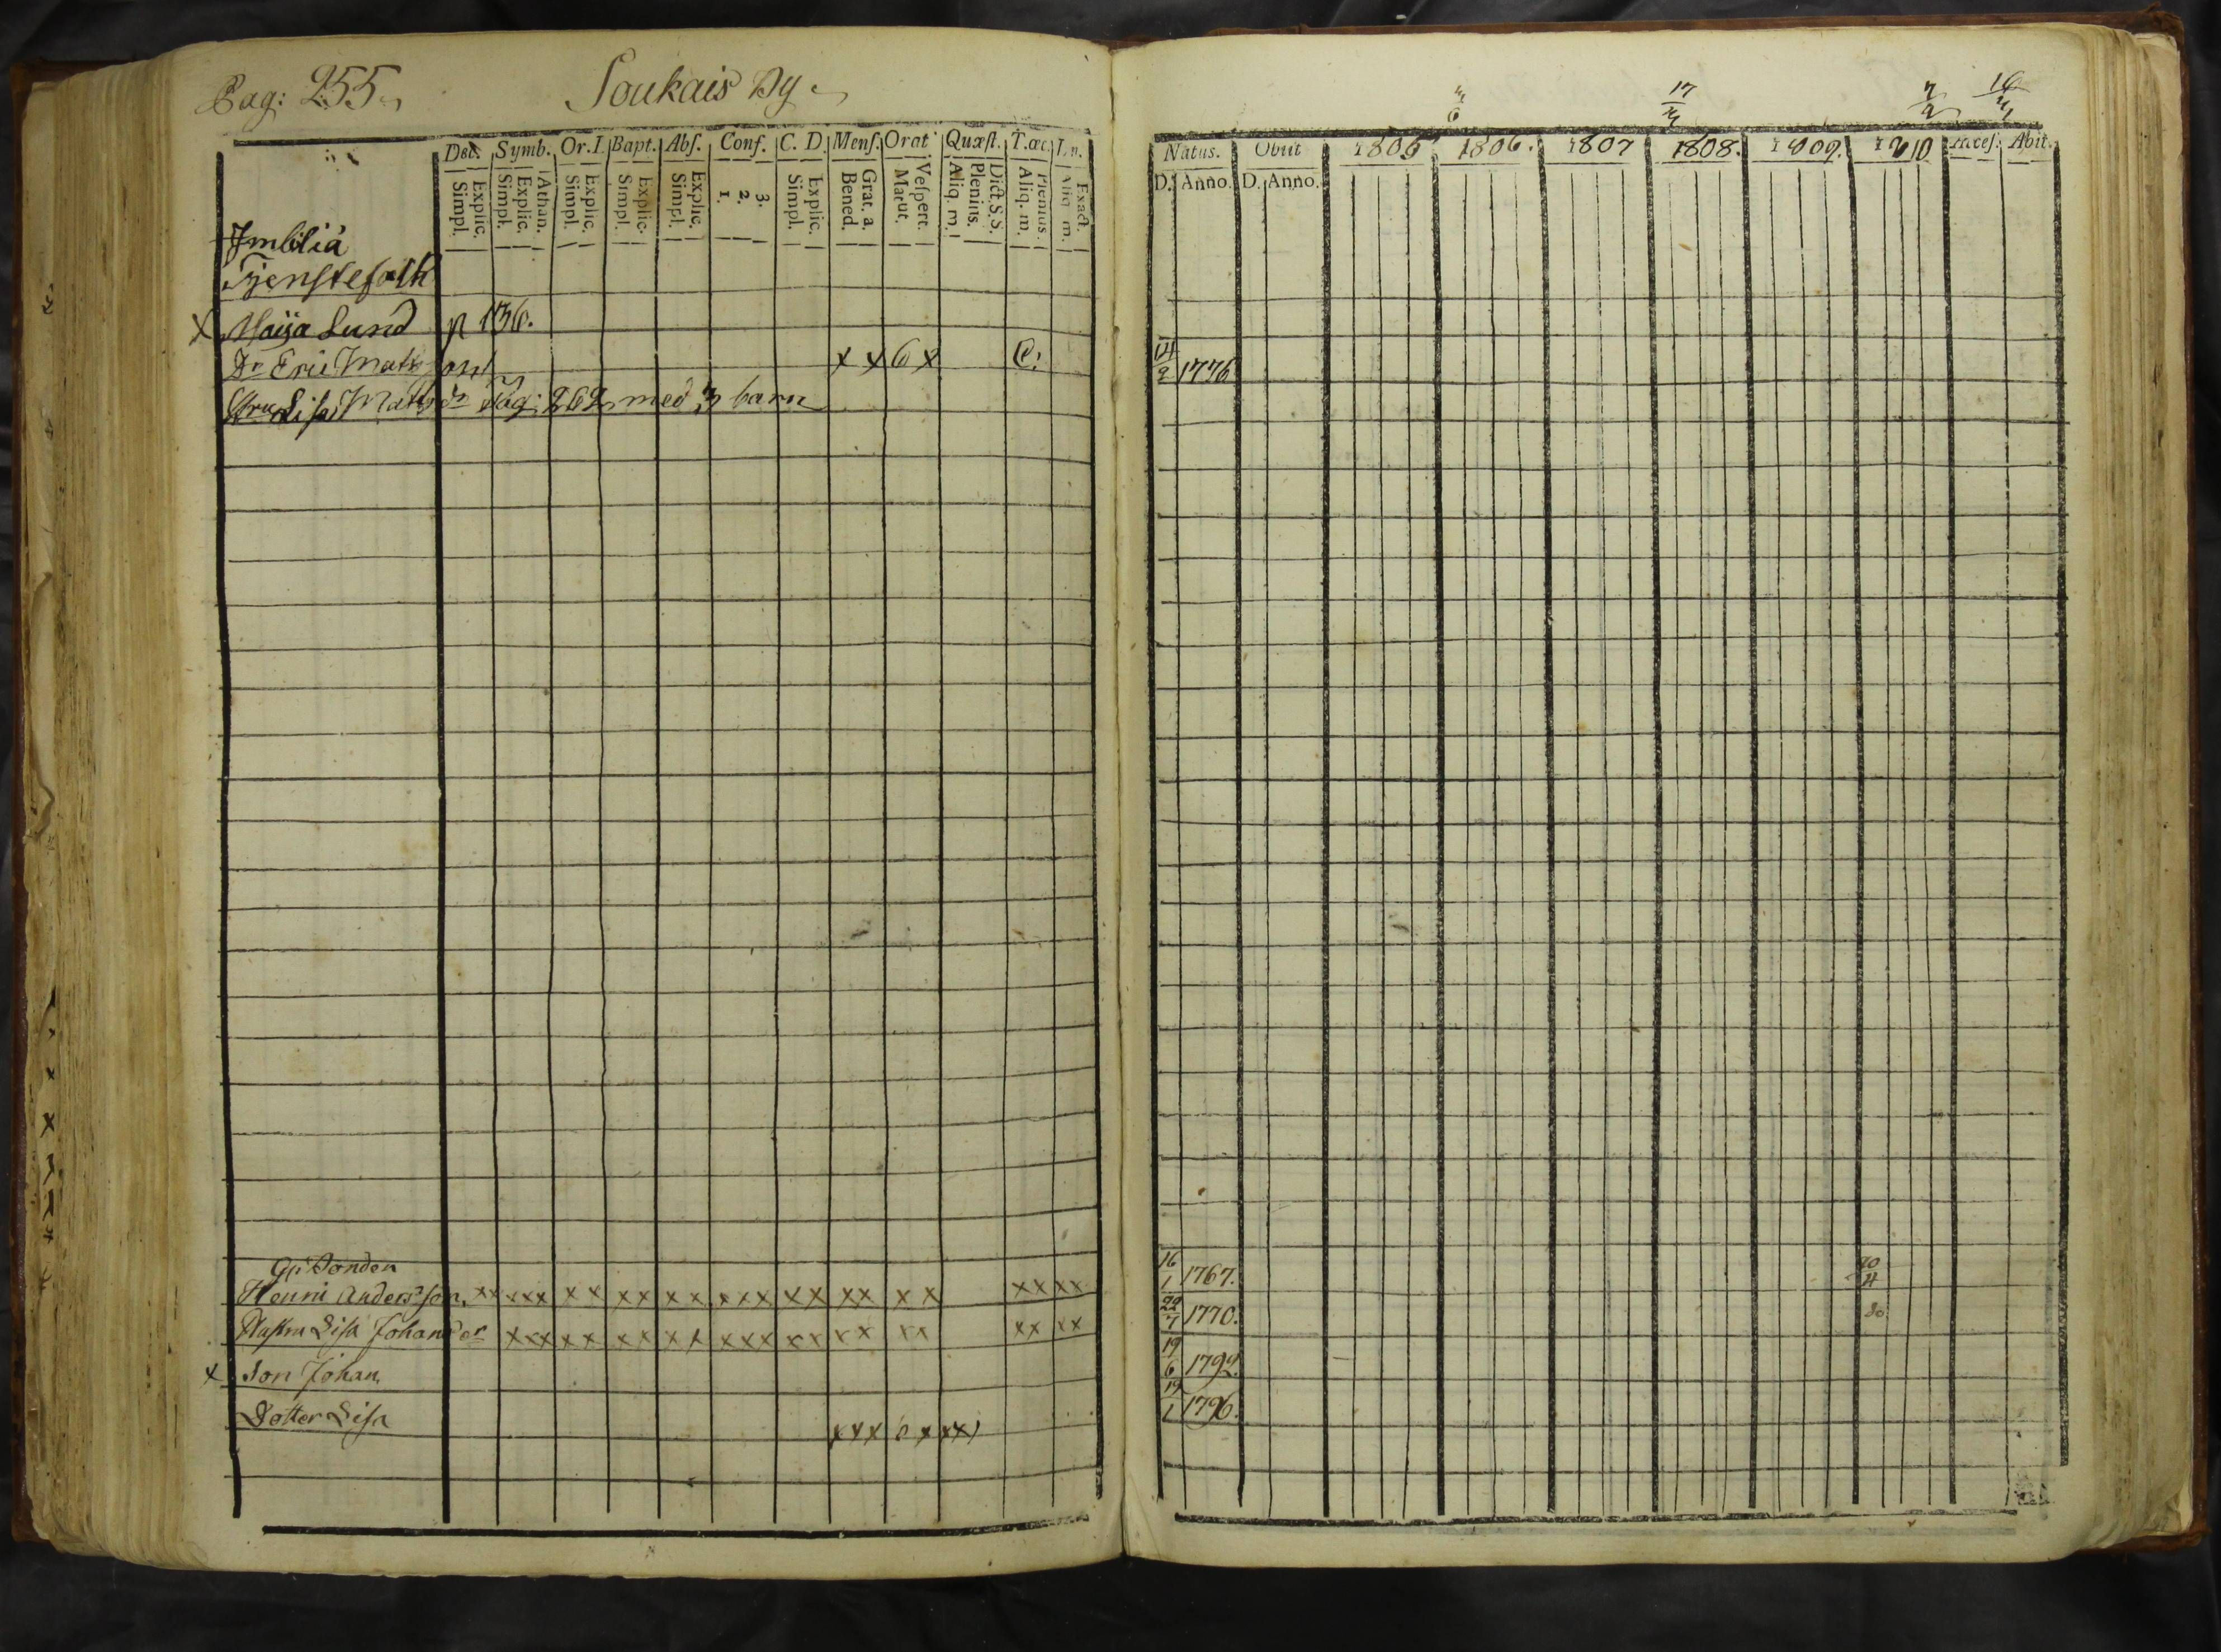 Pag: 255
Soukais By
Dec. Symb. Or.I. Bapt. Abſ. Conf. C. D. Menſ. Orat Quæſt. T.œc.
Explic. Simpl. Athan. Explic. Simpl. Explic. Simpl. Explic. Simpl. Explic. Simpl. 3. 2. 1. Explic. Simpl. Grat. a. Bened. Veſpert. Matut. Dict.S.S. Plenius. Aliq. m. Plenius. Aliq. m. Exact. Aliq. m.
Tjenstefolk
x Maija Lund p 136.
Dr Eric Matsson x x 6 x C:
Hru Lisa Matsdr Pag: 262 med 3 barn
Gl: Bonden
Henric Andersson xx xxx xx xx xx xxx xx xx x x xx xx
Hustru Lisa Johansdr xxx xx xx xx xxx xx xx xx xx xx
x Son Johan
Dotter Lisa xxx 6 x xx
17
Natus. Obiit 1805 1806. 1807 1808. 1809. 1810 Acceſ. Abit.
D. Anno. D. Anno.
14/2 1776
16/1 1767. 20/4
22/7 1770. do
19/6 1792.
19/1 1796.